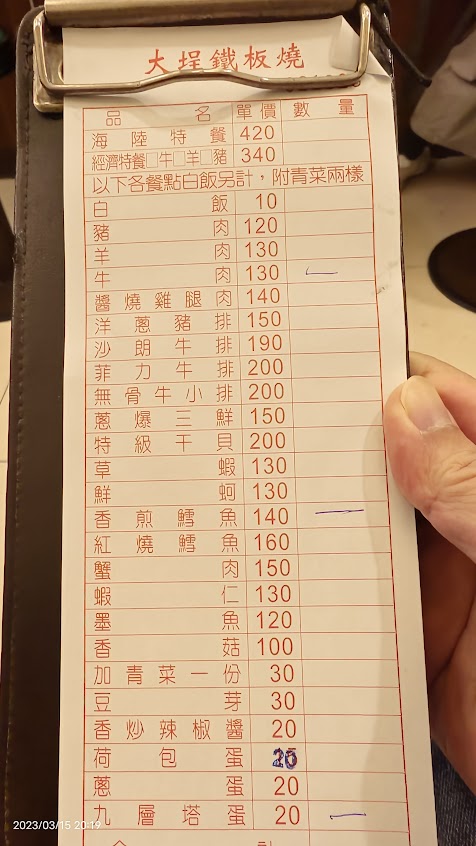 大埕鐵板燒
品名 單價 數量
海陸特餐 420
經濟特餐□牛□羊□豬 340
以下各餐點白飯另計，附青菜兩樣
白飯 10
豬肉 120
羊肉 130
牛肉 130
醬燒雞腿肉 140
洋蔥豬排 150
沙朗牛排 190
菲力牛排 200
無骨牛小排 200
蔥爆三鮮 150
特級干貝 200
草蝦 130
鮮蚵 130
香煎鱈魚 140
紅燒鱈魚 160
蟹肉 150
蝦仁 130
墨魚 120
香菇 100
加青菜一份 30
豆芽 30
香炒辣椒醬 20
荷包蛋
蔥蛋 20
九層塔蛋 20
2023/03/15 20:19